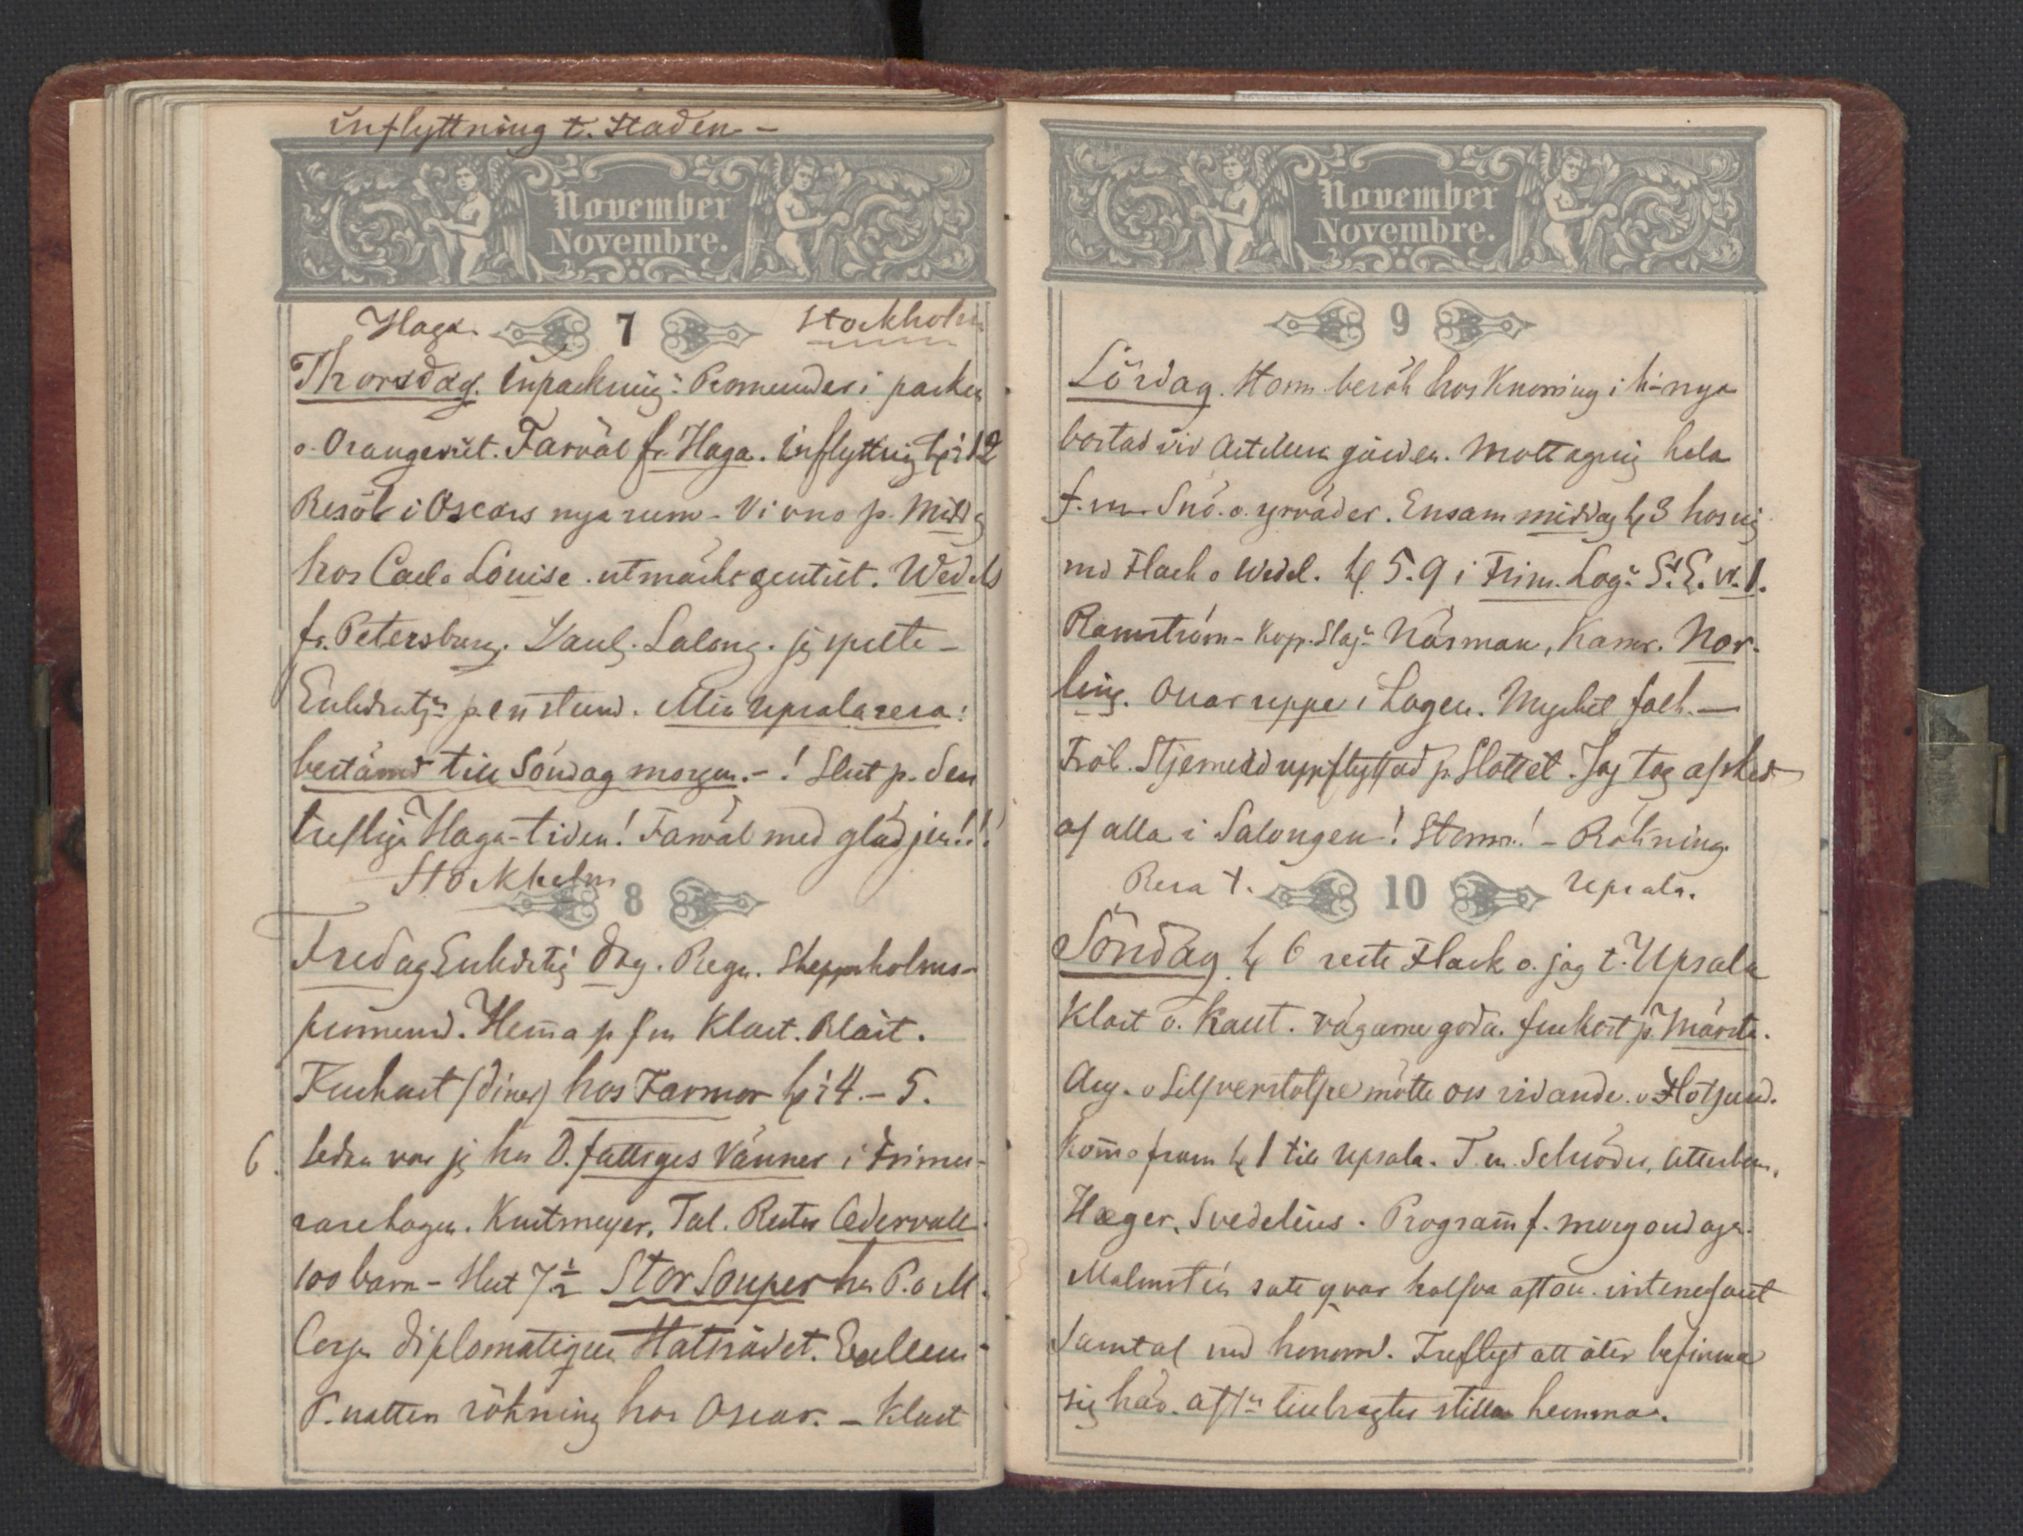 inflyttning t. staden –
November
Novembre.
Haga. 7 Stockholm
Thorsdag. Inpackning. Promenader i parken
o. Orangeriet. Farväl fr. Haga. Inflyttnig kl: 12
Besök i Oscars nya rum – Vi uno p. Midd
hos Carl o Louise. utmärkt gentilt. Wedels
fr. Petersburg. Vanl. Salong. jg spelte –
Enkedrotgn p. en stund. Min Upsala resa:
bestämd till Söndag morgon. – ! Slut p. den
trefliga Haga-tiden! Farväl med glädjen!!!
Stockholm
8
Fredag Enkelstig Dag. Regn. Skeppsholms-
promend. Hemma p fm Klart. Blåst.
Frukost (diner) hos Farmor kl: 4 – 5.
6. Sedan var jg hos D. fattiges Vänner i Frimu-
rarelogen. Kuntmeyer, Tal. Cedervall
100 barn – Slut 7 ½ Stor Souper hos P. o M.
Corps diplomatiquen Statsrådet. Excellen-
P. natten rökning hos Oscar. – Klart
November
Novembre.
9
Lördag. Storm. besök hos Knorring i h- nya
bostad vid Artilleri gården. Mottagnig hela
f.m. Snö. o. yrväder. Ensam middag kl 3 hos mig
md Flach o Wedel. kl 5. 9 i Frim. Log: St. E. VI. 1.
Ramström – Kopp. Slag. Norman, Kamr. Nor-
ling. Oscar uppe i Logen. Myckel folk. —
Fröl. Stjerneld uppflyttad p. Slottet. Jag tog afsked
af alla i Salongen! Storm! – Rökning.
Resa t. 10 Upsala.
Söndag kl 6 reste Flach o. jag t. Upsala
Klart o. kallt. vägarne goda. frukost p. Märsta.
Aug. o Silfverstolpe mötte oss ridande. v Flötsund.
Kommo fram kl 1 till Upsala. T. m. Schröder, Atterbom,
Hæger, Svedelius. Program f. morgondagen.
Malmstén satt qvar halfva afton. intressant
Samtal md honom. Trefligt att åter befinna
sig här. Aftn tillbragtes stilla hemma.